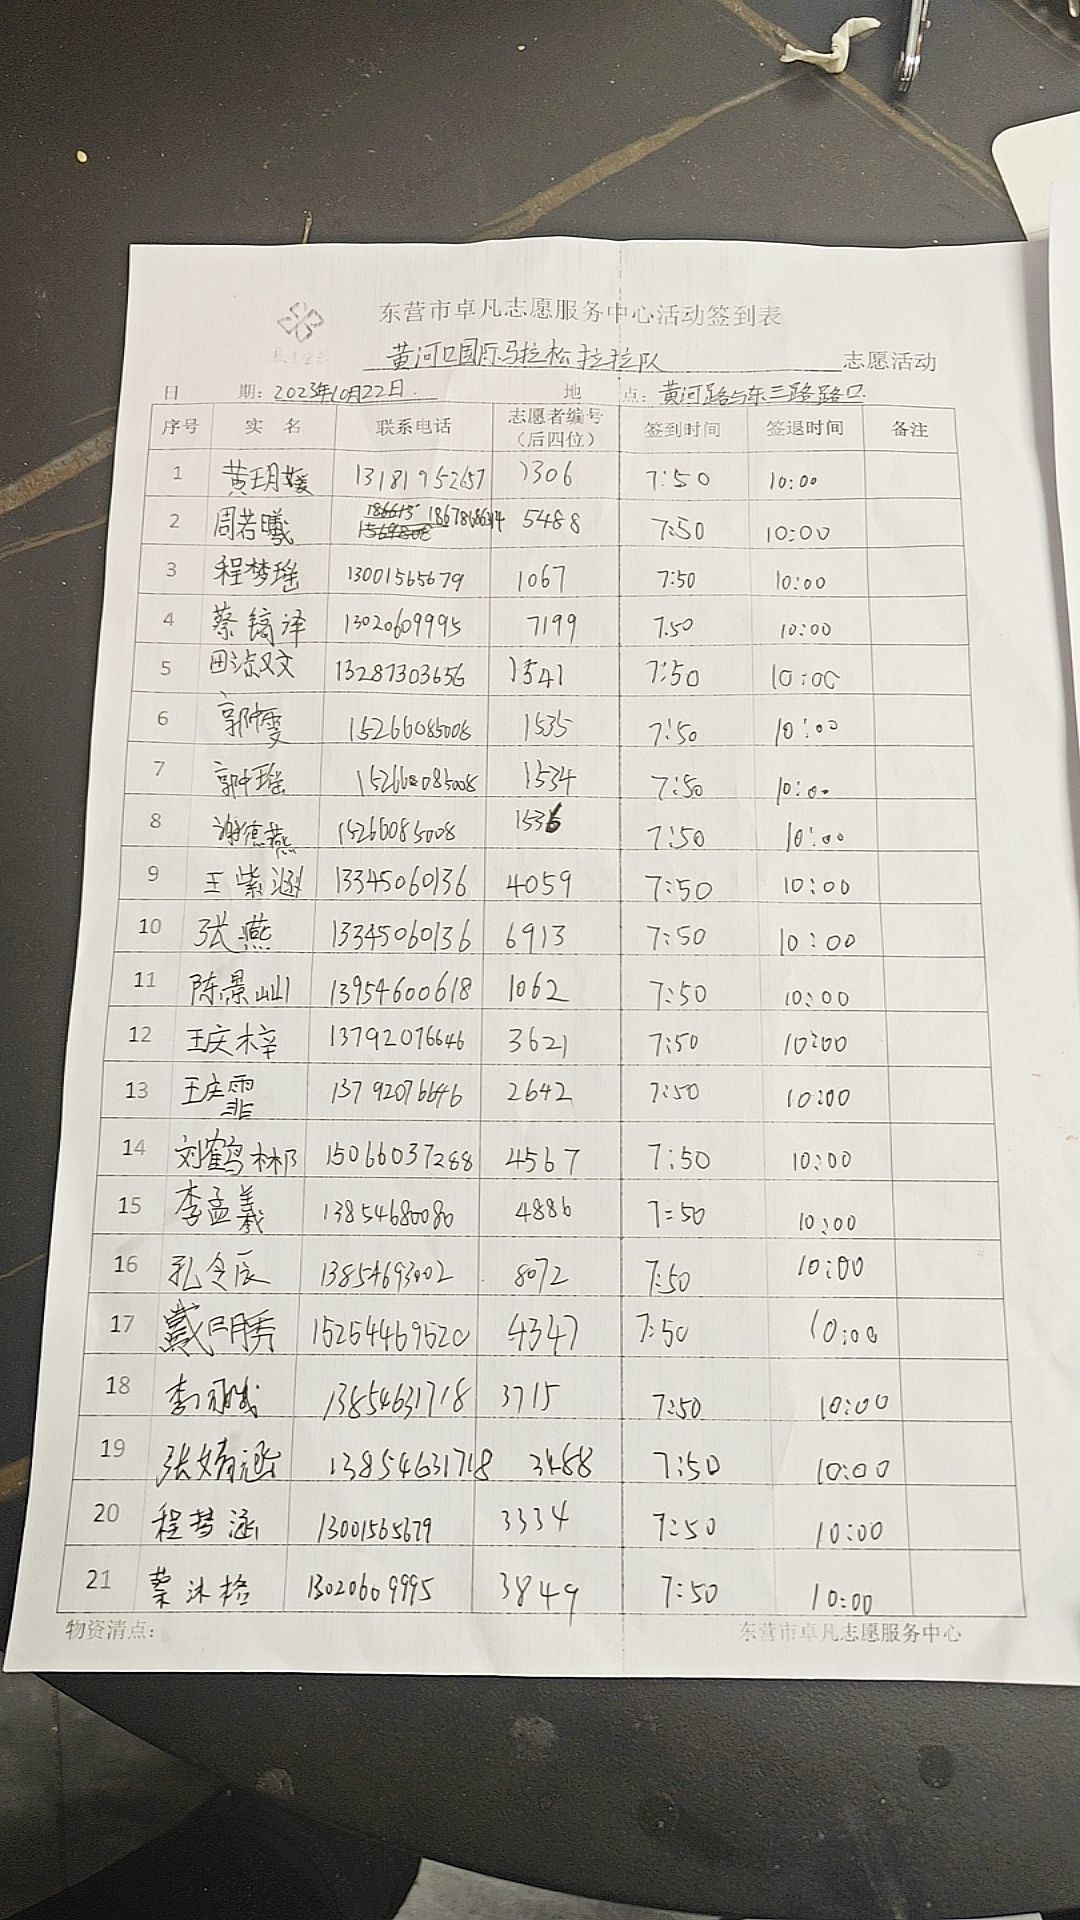 东营市卓凡志愿服务中心活动签到表
黄河口国际马拉松拉拉队 志愿活动
日 期：2023年10月22日. 地 点：黄河路与东三路路口.
序号 实 名 联系电话 志愿者编号（后四位） 签到时间 签退时间 备注
1 黄玥媛 13181952657 1306 7:50 10:00
2 周若曦 5488 7:50 10:00
3 程梦瑶 13001565679 1067 7:50 10:00
4 蔡镐泽 13020609995 7199 7.50 10:00
5 田淑文 13287303656 1541 7:50 10:00
6 郭忡雯 15266085008 1535 7:50 10:00
7 郭忡瑶 15266085008 1534 7:50 10:00
8 谢德燕 15266085008 1536 7:50 10:00
9 王紫涵 13345060136 4059 7:50 10:00
10 张燕 13345060136 6913 7:50 10:00
11 陈景灿 13954600618 1062 7:50 10:00
12 王庆梓 13792076646 3621 7:50 10:00
13 王庆霏 13792076646 2642 7:50 10:00
14 刘鹤彬 15066037288 4567 7:50 10:00
15 李孟羲 13854680080 4886 7:50 10:00
16 孔令辰 13854693002 8072 7:50 10:00
17 戴 秀 15254469520 4347 7:50 10:00
18 李 13854631718 3715 7:50 10:00
19 张婧涵 13854631718 3488 7:50 10:00
20 程梦涵 13001565679 3334 7:50 10:00
21 蔡沐格 13020609995 3849 7:50 10:00
物资清点： 东营市卓凡志愿服务中心